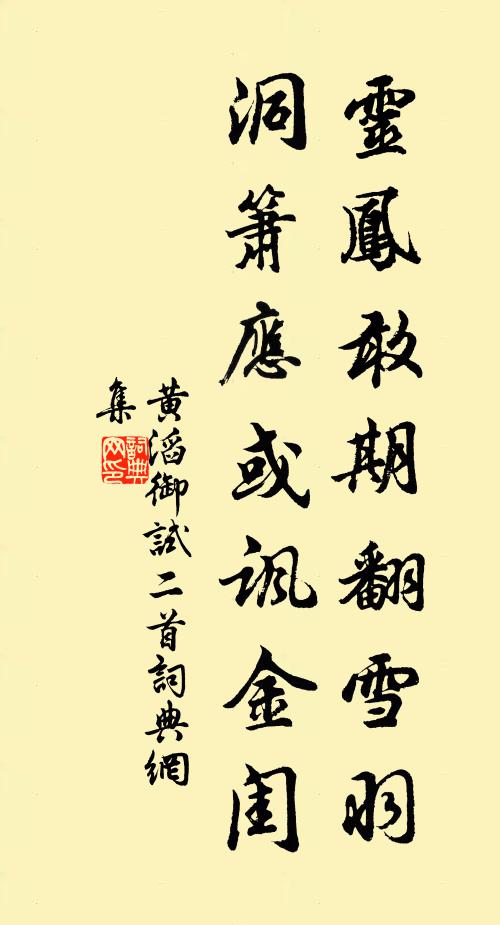 靈鳳敢期翻雪羽
洞簫應或諷金閨
黃滔御試二首詞典網
集
詞典
網印